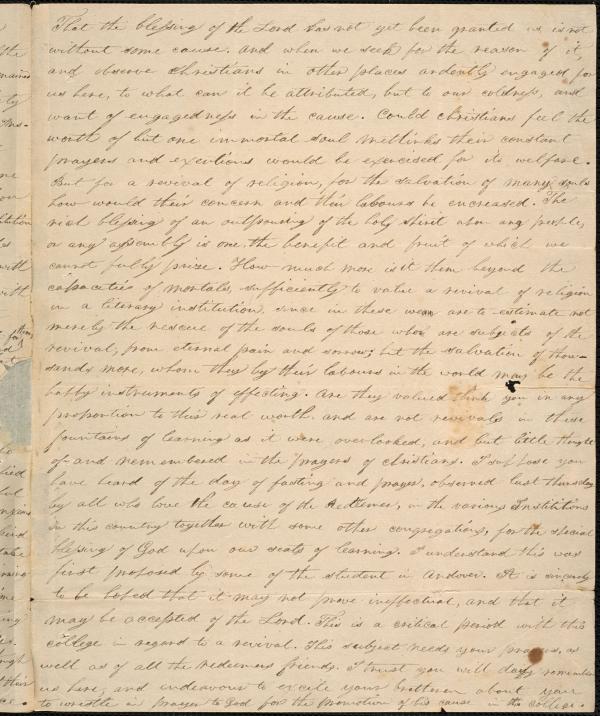 That the blessing of the Lord has not yet been granted us is not
without some cause. And when we seek for the reason of it,
and observe christians in other places ardently engaged for
us here, to what can it be attributed, but to our coldness, and
want of engagedness in the cause. Could christians feel the
worth of but one immortal soul methinks their constant
prayers and exertions would be exercised for its welfare.
But for a revival of religion, for the salvation of many souls
how would their concern and their labours be increased. The
rich blessing of an outpouring of the holy spirit upon any people,
or any assembly is one, the benefit and fruit of which we
cannot fully prize. How much more is it then beyond the
capacities of mortals, sufficiently to value a revival of religion
in a literary institution, since in these we are to estimate not
merely the rescue of the souls of those who are subjects of the
revival, from eternal pain and sorrow; but the salvation of thou-
sands more, whom they by their labours in the world may be the
happy instruments of effecting. Are they valued think you in any
proportion to their real worth. and are not revivals in these
fountains of learning as it were overlooked, and but little thought
of and remembered in the prayers of christians. I suppose you
have heard of the day of fasting and prayer, observed last thursday
by all who love the cause of the Redeemer, in the various Institutions
in this country together with some other congregations, for the special
blessing of God upon our seats of learning. I understand this was
first proposed by some of the student in Andover. It is sincerely
to be hoped that it may not prove ineffectual, and that it
may be accepted of the Lord. This is a critical period with this
college in regard to a revival. This subject needs your prayers, as
well as of all the Redeemers friends. I trust you will daily remember
us here, and endeavour to excite your brethren about you
to wrestle in prayer to God for the promotion of his cause in this college.